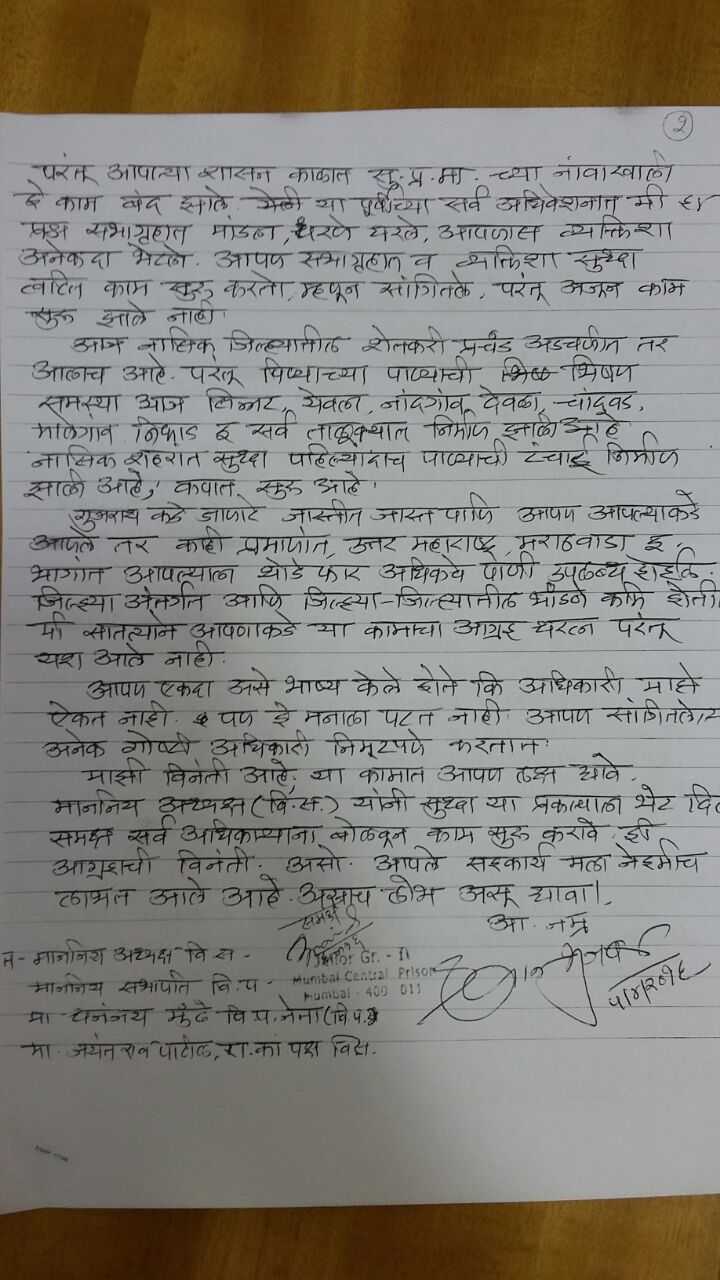 २
परंतू आपल्या शासन काळात सु.प्र.मा. च्या नांवाखाली
हे काम बंद झाले. गेली या पूर्वीच्या सर्व अधिवेशनात मी हा
प्रश्न सभागृहात मांडला, धरणे धरले, आपणास व्यक्तिशा
अनेकदा भेटलो. आपण सभागृहात व व्यक्तिशा सुध्दा
त्वरित काम सुरू करतो, म्हणून सांगितले. परंतू अजून काम
सुरू झाले नाही.
आज नासिक जिल्ह्यातील शेतकरी प्रचंड अडचणीत तर
आलाच आहे. परंतू पिण्याच्या पाण्याची भिषण
समस्या आज सिन्नर, येवला, नांदगांव, देवळा, चांदवड,
मालेगांव निफाड इ सर्व तालुक्यात निर्माण झाली आहे
नासिक शहरात सुध्दा पहिल्यांदाच पाण्याची टंचाई निर्माण
झाली आहे, कपात सुरू आहे.
गुजराथ कडे जाणारे जास्तीत जास्त पाणि आपण आपल्याकडे
आणले तर काही प्रमाणांत, उत्तर महाराष्ट्र, मराठवाडा इ.
भागांत आपल्याला थोडे फार अधिकचे पाणी उपलब्ध होईल.
जिल्ह्या अंतर्गत आणि जिल्ह्या-जिल्ह्यातील भांडणे कमि होती
मी सातत्याने आपणाकडे या कामाचा आग्रह धरला परंतू
यश आले नाही.
आपण एकदा असे भाष्य केले होते कि अधिकारी माझे
ऐकत नाही. पण हे मनाला पटत नाही. आपण सांगितलेल्या
अनेक गोष्टी अधिकारी निमूटपणे करतात.
माझी विनंती आहे, या कामात आपण लक्ष द्यावे.
माननिय अध्यक्ष (वि.स.) यांनी सुध्दा या प्रकल्पाला भेट दि
समक्ष सर्व अधिकाऱ्यांना बोलवून काम सुरू करावे. ही
आग्रहाची विनंती. असो. आपले सहकार्य मला नेहमीच
लाभत आले आहे. असाच लोभ असू द्यावा।,
समक्ष
आ. नम्र
माननिय अध्यक्ष वि स -
Gr. - II
माननिय सभापति वि.प -
Mumbai Central Prison
Mumbai - 400 011
मा धनंजय मुंढे वि.प. नेता (वि.प.)
मा. जयंतराव पाटील, रा.कां पक्ष विस.